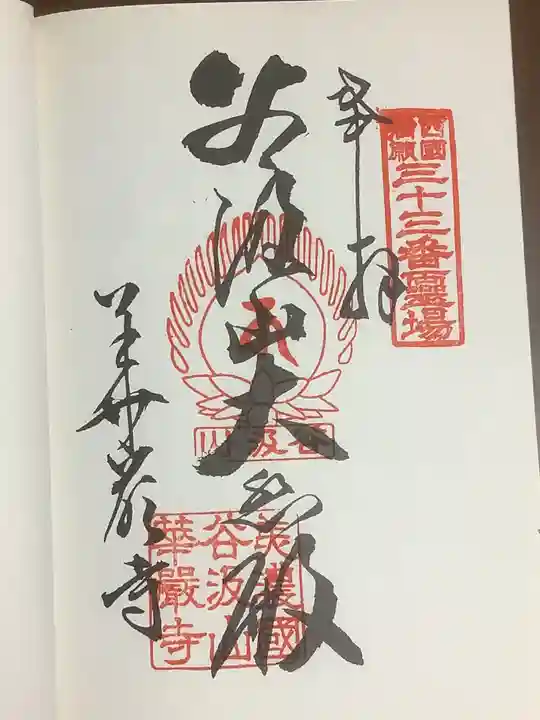 西國
満願
三十三番靈場
奉拝
谷汲山大悲殿
谷汲山
美濃國
谷汲山
華嚴寺
華嚴寺